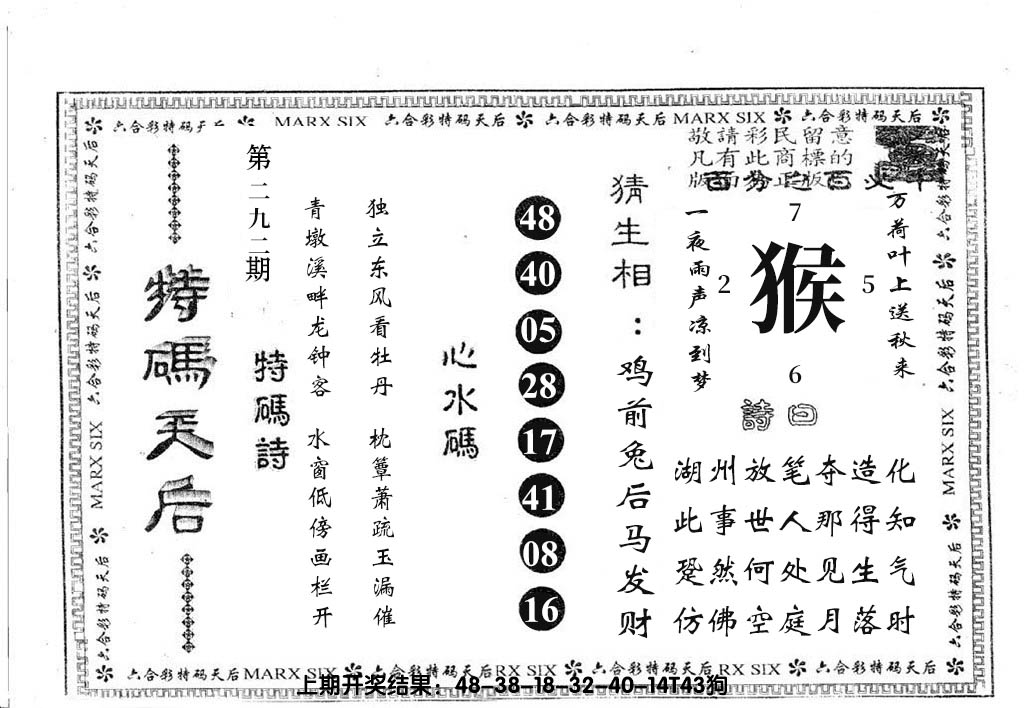 六合彩特码天后 MARX SIX 六合彩特码天后 六合彩特码天后 MARX SIX 六合彩特码天后
敬請彩民留意
凡有此商標的
版面为正版
万荷叶上送秋来
7
猴
2
5
6
一夜雨声凉到梦
詩曰
湖州放笔夺造化
此事世人那得知
跫然何处见生气
仿佛空庭月落时
猜生相：鸡前兔后马发财
48
40
05
28
17
41
08
16
心水碼
独立东风看牡丹 枕簟萧疏玉漏催
青墩溪畔龙钟客 水窗低傍画栏开
特碼詩
第二九二期
特碼天后
六合彩特码天后 六合彩特码天后 MARX SIX 六合彩特码天后
六合彩特码天后 六合彩特码天后 MARX SIX 六合彩特码天后
六合彩特码天后 MARX SIX 六合彩特码天后 RX SIX 六合彩特码天后 RX SIX 六合彩特码天后
上期开奖结果：48-38-18-32-40-14T43狗